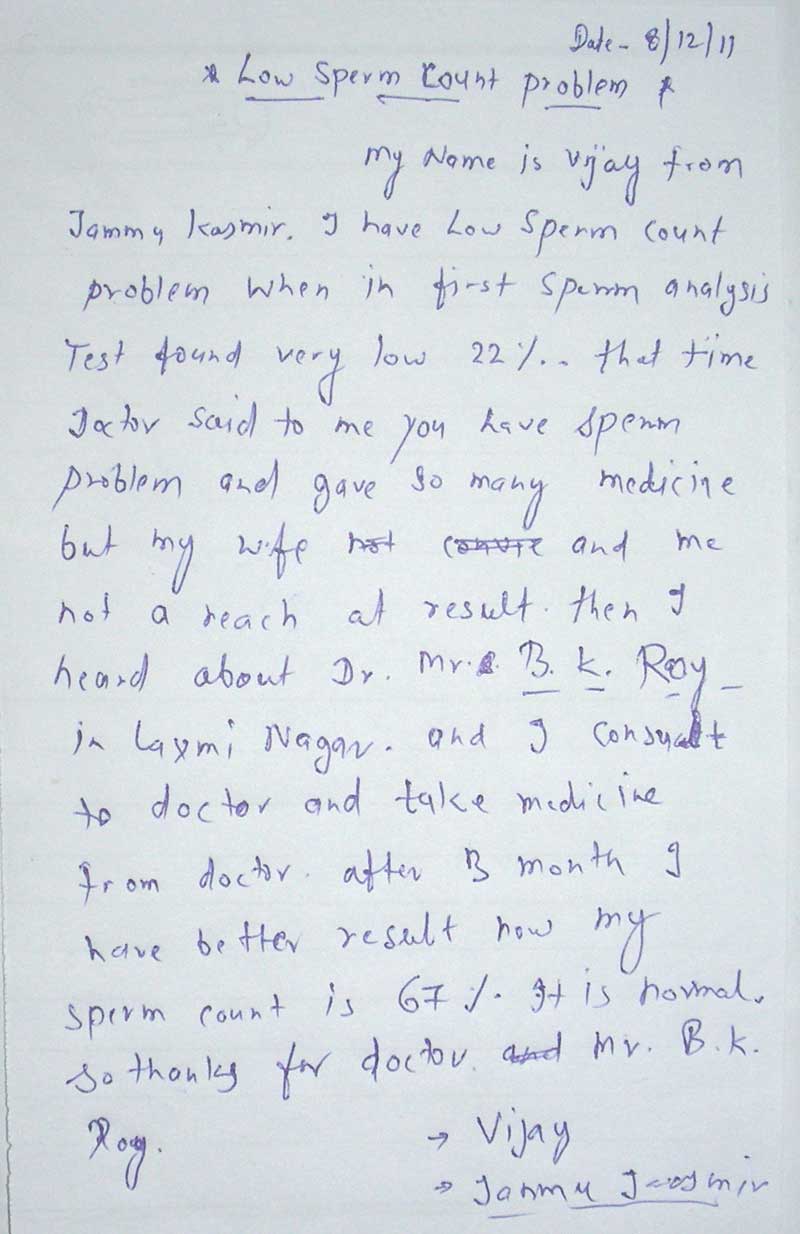 Date- 8/12/11
* Low Sperm Count problem *
My Name is Vijay from
Jammu Kasmir. I have Low Sperm Count
problem when in first Sperm analysis
Test found very low 22%.. that time
Doctor said to me you have sperm
problem and gave so many medicine
but my wife not and me
not a reach at result. then I
heard about Dr. Mr. B. K. Roy
in Laxmi Nagar. and I consult
to doctor and take medicine
from doctor. after 3 month I
have better result now my
sperm count is 67%. It is normal.
so thanks for doctor. and Mr. B.K.
Roy.
→ Vijay
→ Jammu